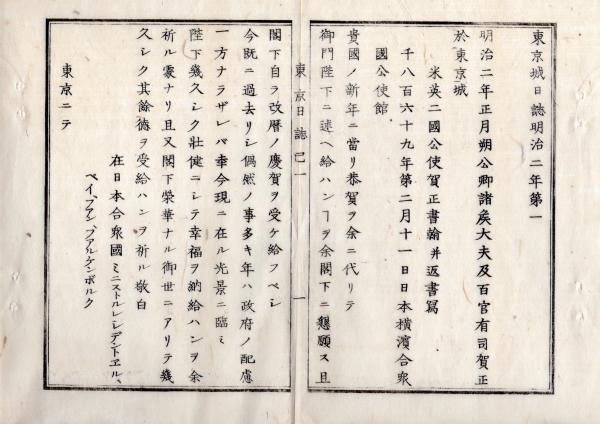 東京城日誌明治二年第一
明治二年正月朔公卿諸矦大夫及百官有司賀正
於東京城
米英二國公使賀正書翰并返書寫
千八百六十九年第二月十一日日本横濱合衆
國公使館
貴國ノ新年ニ當リ恭賀ヲ余ニ代リテ
御門陛下ニ述ヘ給ハンヿヲ余閣下ニ懇願ス且
東京日誌己一
一
閣下自ラ改曆ノ慶賀ヲ受ケ給フベシ
今既ニ過去リシ偶然ノ事多キ年ハ政府ノ配慮
一方ナラザレバ幸今現ニ在ル光景ニ臨ミ
陛下幾久シク壯健ニシテ幸福ヲ納給ハンヲ余
祈ル処ナリ且又閣下榮華ナル御世ニアリテ幾
久シク其餘德ヲ受給ハンヲ祈ル敬白
在日本合衆國ミニストルレシデントヱル、
ベイ、フアン、フアルケンボルク
東京ニテ